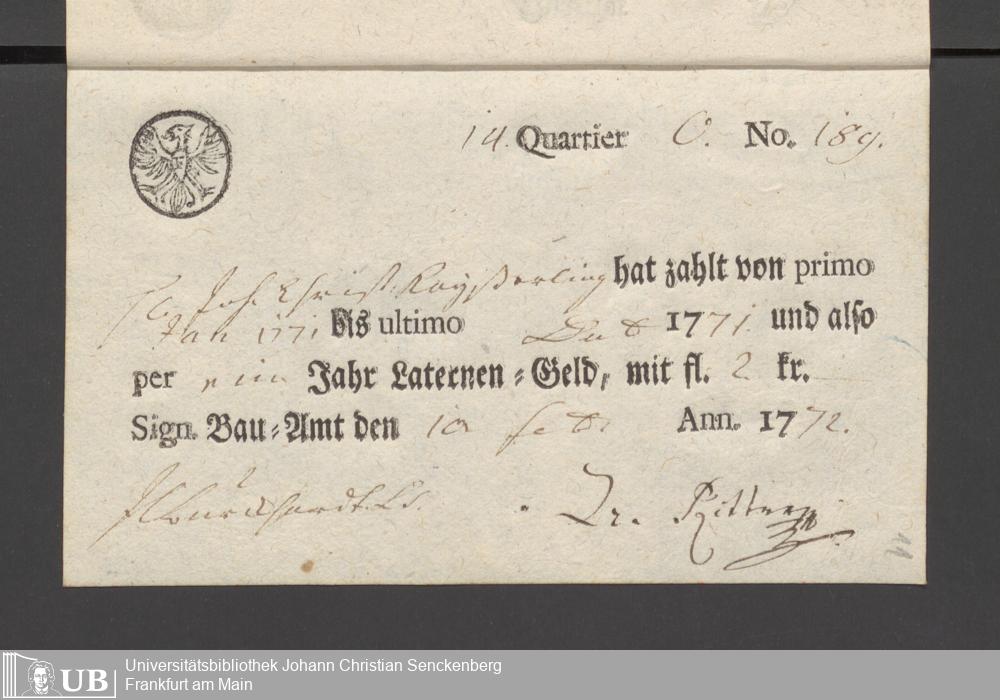 14. Quartier O. No. 189.
Joh. Christ. Kayßerling hat zahlt von primo
Jan 1771 bis ultimo 1771. und also
per ein Jahr Laternen-Geld, mit fl. 2 kr.
Sign. Bau-Amt den 10 Ann. 1772.
Ritter
Universitätsbibliothek Johann Christian Senckenberg
Frankfurt am Main
UB